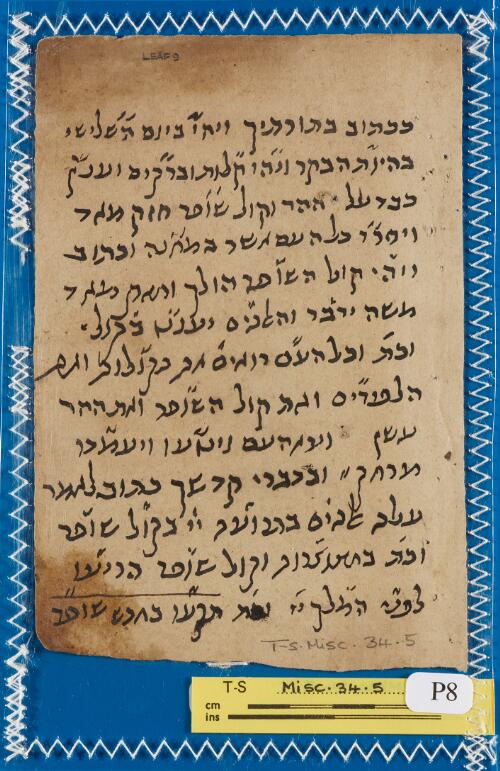 LEAF 9
ככתוב בתורתיך ויהי ביום השלישי
בהיות הבקר ויהי קלות וברקים וענן
כבד על ההר וקול שופר חזק מאד
ויחרד כל העם אשר במחנה וכתוב
ויהי קול השופר הולך וחזק מאד
משה ידבר והאלהים יעננו בקול
וכת וכל העם רואים את הקולות ואת
הלפידים ואת קול השופר ואת ההר
עשן וירא העם וינועו ויעמדו
מרחק ובדברי קדשך כתוב לאמר
עלה אלהים בתרועה ייי בקול שופר
וכת בחצוצרות וקול שופר הריעו
לפני המלך ייי וכת תקעו בחדש שופר
T-S. Misc. 34.5
T-S Misc. 34.5 P8
cm
ins